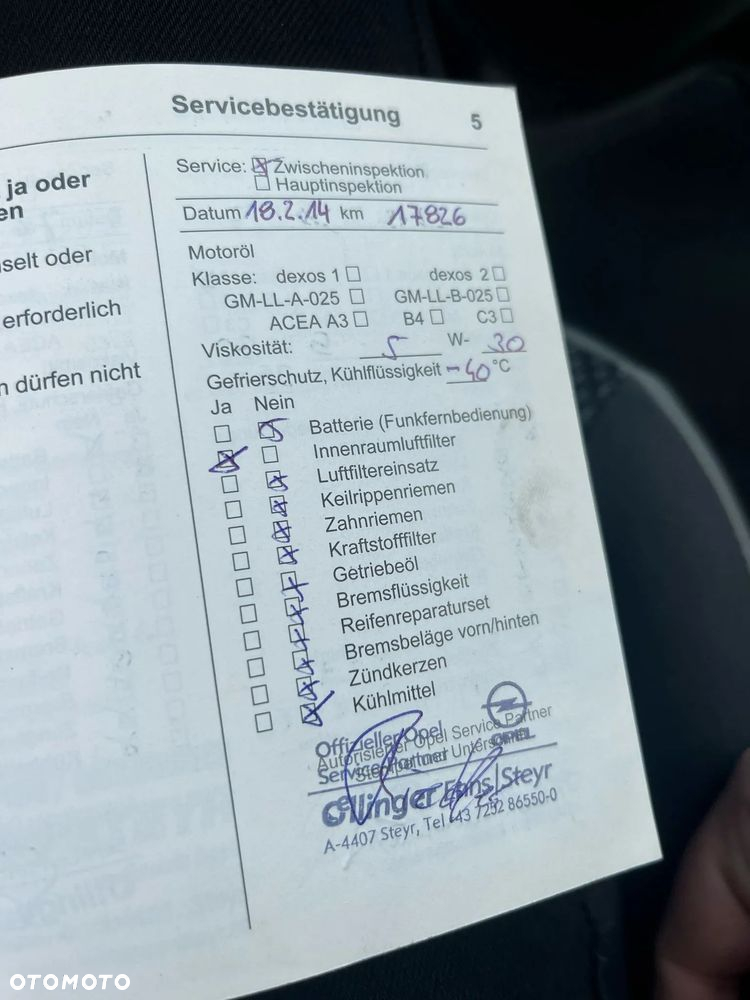 Servicebestätigung 5
ja oder
en
selt oder
erforderlich
n dürfen nicht
Service: Zwischeninspektion
Hauptinspektion
Datum 18.2.14 km 17826
Motoröl
Klasse: dexos 1 dexos 2
GM-LL-A-025 GM-LL-B-025
ACEA A3 B4 C3
Viskosität: 5 W- 30
Gefrierschutz, Kühlflüssigkeit -40 °C
Ja Nein
Batterie (Funkfernbedienung)
Innenraumluftfilter
Luftfiltereinsatz
Keilrippenriemen
Zahnriemen
Kraftstofffilter
Getriebeöl
Bremsflüssigkeit
Reifenreparaturset
Bremsbeläge vorn/hinten
Zündkerzen
Kühlmittel
Offizieller Opel
Autorisierter Opel Service Partner
Service Partner
OPEL
Steyr
A-4407 Steyr, Tel +43 7252 86550-0
OTOMOTO